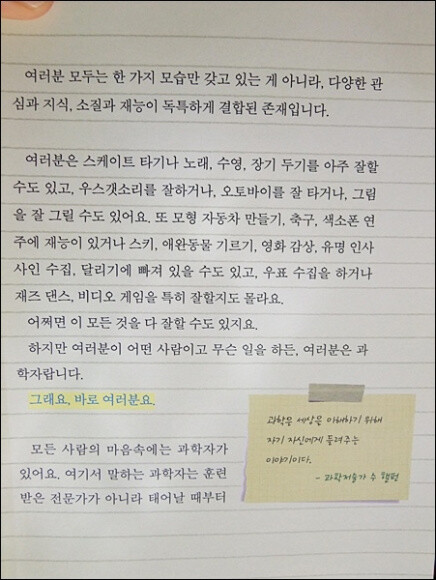 여러분 모두는 한 가지 모습만 갖고 있는 게 아니라, 다양한 관
심과 지식, 소질과 재능이 독특하게 결합된 존재입니다.
여러분은 스케이트 타기나 노래, 수영, 장기 두기를 아주 잘할
수도 있고, 우스갯소리를 잘하거나, 오토바이를 잘 타거나, 그림
을 잘 그릴 수도 있어요. 또 모형 자동차 만들기, 축구, 색소폰 연
주에 재능이 있거나 스키, 애완동물 기르기, 영화 감상, 유명 인사
사인 수집, 달리기에 빠져 있을 수도 있고, 우표 수집을 하거나
재즈 댄스, 비디오 게임을 특히 잘할지도 몰라요.
어쩌면 이 모든 것을 다 잘할 수도 있지요.
하지만 여러분이 어떤 사람이고 무슨 일을 하든, 여러분은 과
학자랍니다.
그래요, 바로 여러분요.
모든 사람의 마음속에는 과학자가
있어요. 여기서 말하는 과학자는 훈련
받은 전문가가 아니라 태어날 때부터
과학은 세상을 이해하기 위해
자기 자신에게 들려주는
이야기이다.
- 과학저술가 수 햄펄